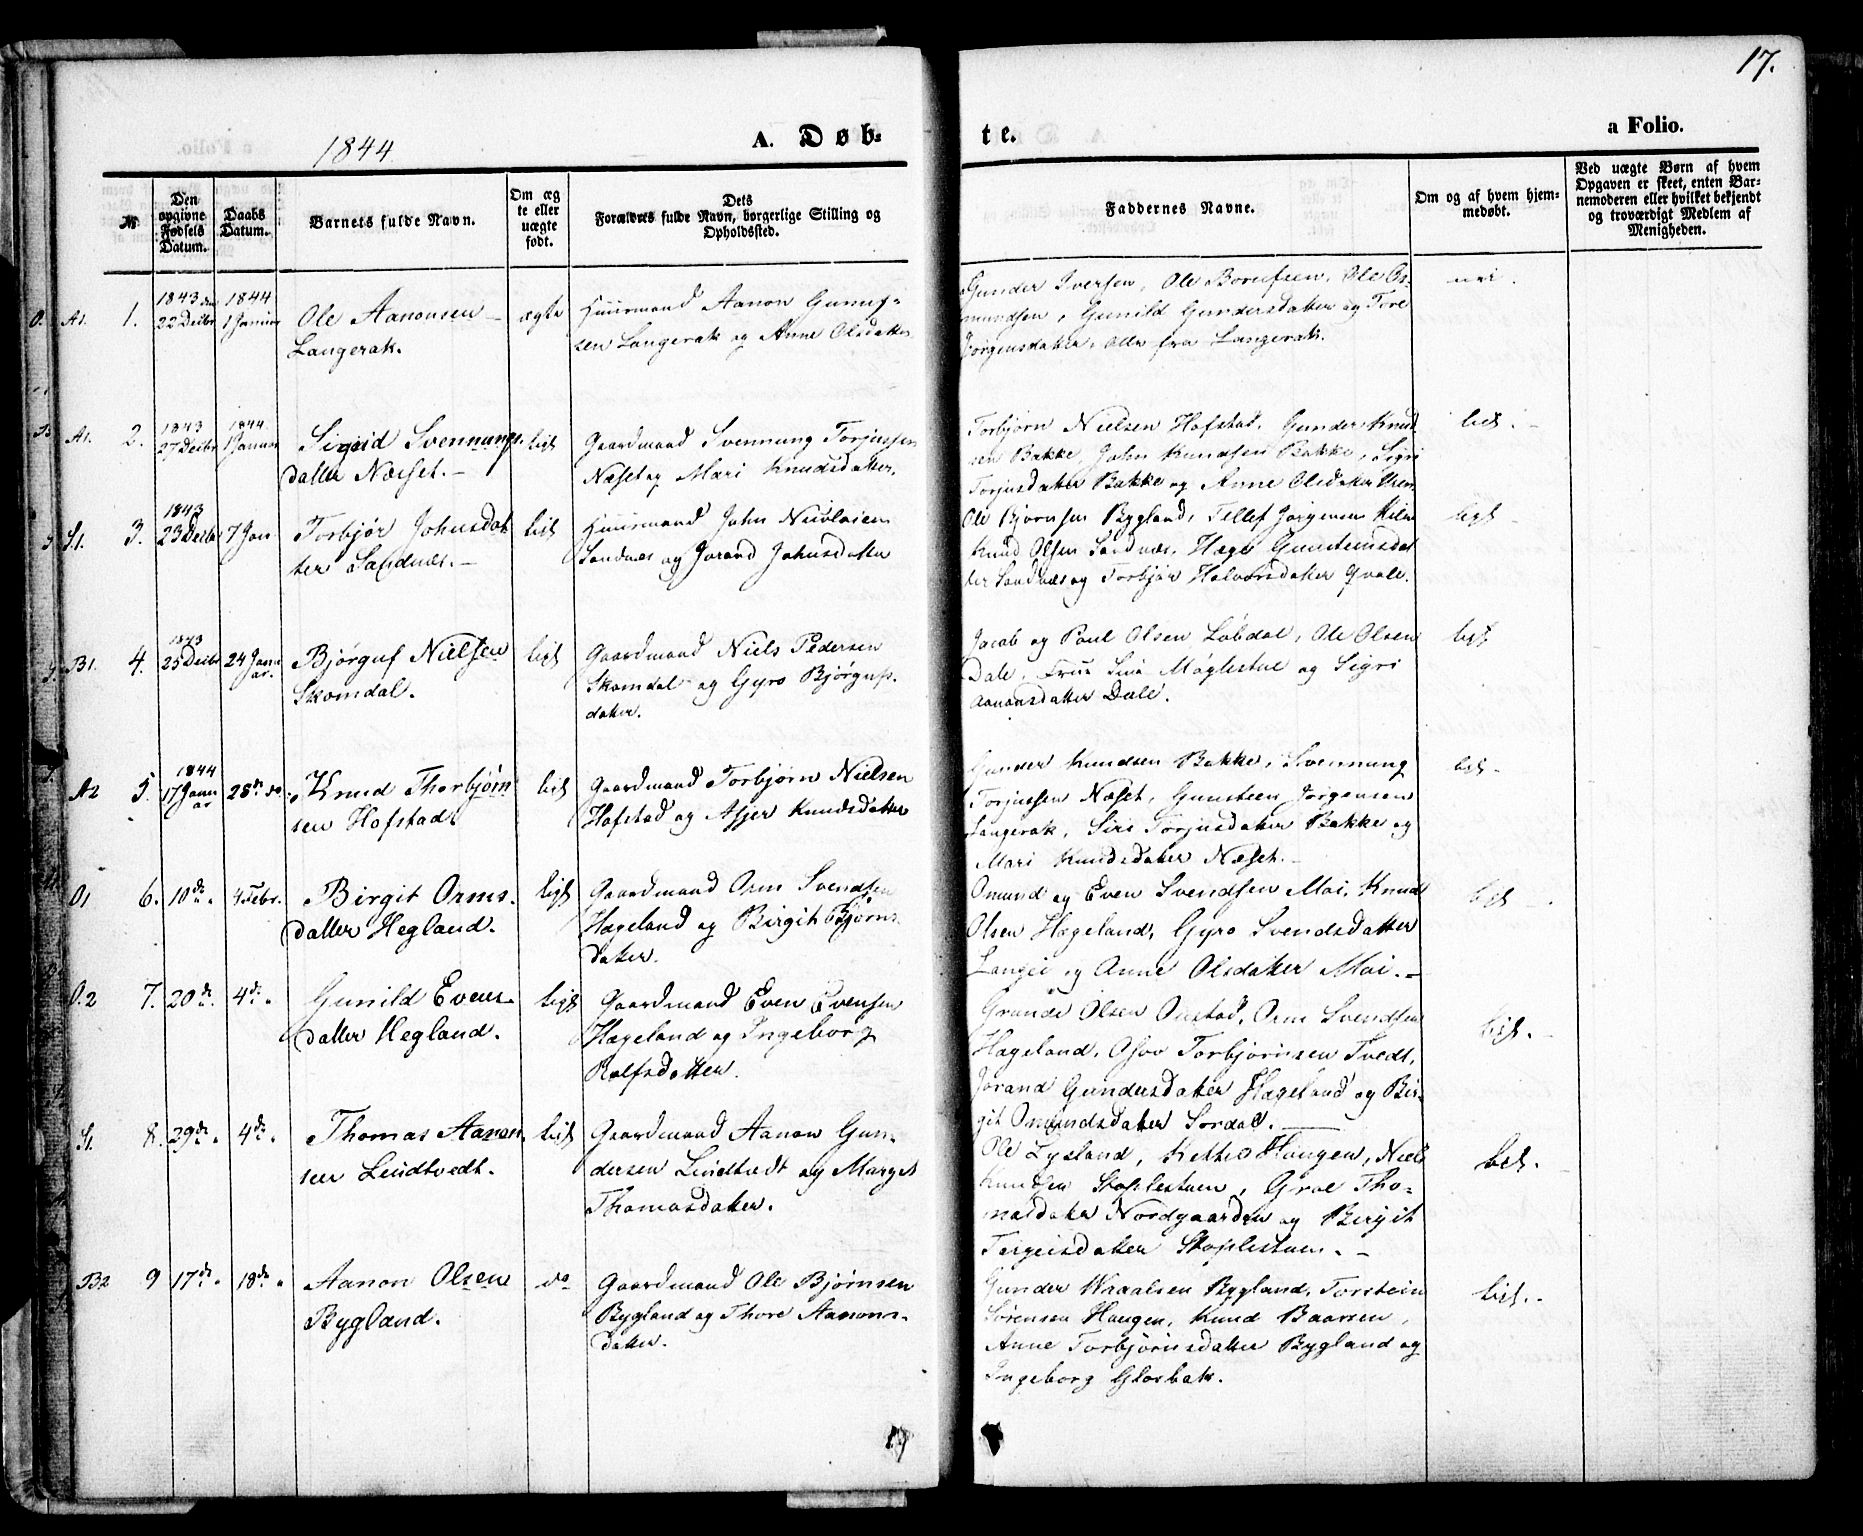 17.
1844
A. Døb-
te.
a Folio.
№
Den opgivne Fødsels Datum.
Daabs Datum.
Barnets fulde Navn.
Om ægte eller uægte født.
Dets Forældres fulde Navn, borgerlige Stilling og Opholdssted.
Faddernes Navne.
Om og af hvem hjemmedøbt.
Ved uægte Børn af hvem Opgaven er skeet, enten Barnemoderen eller hvilket bekjendt og troværdigt Medlem af Menigheden.
A1. 1.
1843 den
22 Decbr
1844
1 Januar
Ole Aanonsen
Langerak.
ægte
Huusmand Aanon Gunuf-
sen Langerak og Anne Olsdatter
Gunder Iversen, Ole Borufsen, Ole Os-
mundsen, Gunild Gundersdatter og Tore
Jörgensdatter, alle fra Langerak.
nei.
A1. 2.
1843
27 Decbr
1844
1 Januar
Sigrid Svennungs-
datter Næset. -
ligt
Gaardmand Svennung Torjussen
Næset og Mari Knudsdatter.
Torbjörn Nielsen Hofstad, Gunder Knud-
sen Bakke, John Knudsen Bakke, Sigri
Torjusdatter Bakke og Anne Olsdatter
ligt.
S1. 3.
1843
23 Decbr
7 Jan
Torbjör Johnsdat-
ter Sandnæs. -
ligt
Huusmand John Nicolaisen
Sandnæs og Jorand Johnsdatter
Ole Björnsen Bygland, Tellef Jörgensen
Knud Olsen Sandnæs, Hæge Gunsteinsdat-
ter Sandnæs og Torbjör Halvorsdatter Qvale.
ligt
B1. 4.
1843
25 Decbr
24 Janu-
ar.
Bjørguf Nielsen
Skomdal.
ligt
Gaardmand Niels Pedersen
Skomdal og Gyro Bjørgufs-
datter.
Jacob og Poul Olsen Löbdal, Ole Olsen
Dale, Frue Møglestue og Sigri
Aanonsdatter Dale.
ligt
A2 5.
1844
17 Janu-
ar
28de do
Knud Thorbjørn-
sen Hofstad.
ligt
Gaardmand Torbjörn Nielsen
Hofstad og Asjer Knudsdatter
Gunder Knudsen Bakke, Svennung
Torjussen Næset, Gunsteen Jörgensen
Langerak, Siri Torjusdatter Bakke og
Mari Knudsdatter Næset. -
ligt.
O1 6.
10de.
4 Febr.
Birgit Orms-
datter Hegland.
ligt
Gaardmand Orm Svendsen
Hægeland og Birgit Bjørns-
datter.
Omund og Even Svendsen Moi, Knud
Olsen Hægeland, Gyro Svendsdatter
Langei og Anne Olsdatter Moi. -
ligt
O.2 7.
20de.
4de.
Gunild Evens-
datter Hegland.
ligt
Gaardmand Even Evensen
Hægeland og Ingeborg
Rolfsdatter.
Grunde Olsen Austad, Orm Svendsen
Hægeland, Osvo Torbjörnsen Tvedt,
Jorand Gundersdatter Hægeland og Bir-
git Omundsdatter Sordal.
ligt.
S1. 8.
29de.
4de.
Thomas Aanon-
sen Lindtvedt.
ligt
Gaardmand Aanon Gun-
dersen Lindtvedt og Marget
Thomasdatter.
Ole Lysland, Kettil Haugen, Niels
Knudsen Stoplestuen, Groe Tho-
masdatter Nordgaarden og Birgit
Tergeisdatter Stoplestuen. -
ligt.
B2 9
17de.
18de.
Aanon Olsen
Bygland.
do
Gaardmand Ole Bjørnsen
Bygland og Thore Aanons-
datter.
Gunder Wraalsen Bygland, Torstein
Sörensen Haugen, Knud Baarsen,
Anne Torbjörnsdatter Bygland og
Ingeborg Glosbak.
ligt. -